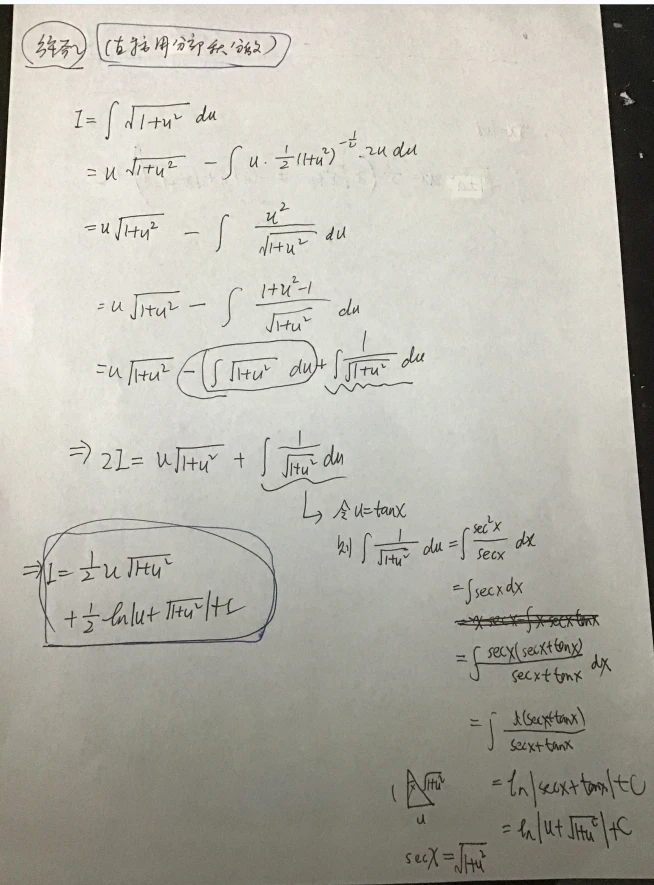 (直接用分部积分做)
I = ∫ √(1+u²) du
= u √(1+u²) - ∫ u · ½ (1+u²)^(-½) · 2u du
= u √(1+u²) - ∫ u²/√(1+u²) du
= u √(1+u²) - ∫ (1+u²-1)/√(1+u²) du
= u √(1+u²) - ∫ √(1+u²) du + ∫ 1/√(1+u²) du
⇒ 2I = u √(1+u²) + ∫ 1/√(1+u²) du
↳ 令 u = tanx
则 ∫ 1/√(1+u²) du = ∫ sec²x/secx dx
= ∫ secx dx
= ∫ secx(secx+tanx)/(secx+tanx) dx
= ∫ d(secx+tanx)/(secx+tanx)
= ln|secx+tanx|+C
= ln|u+√(1+u²)|+C
1 √(1+u²)
u
secx = √(1+u²)
⇒ I = ½ u √(1+u²)
+ ½ ln|u+√(1+u²)|+C